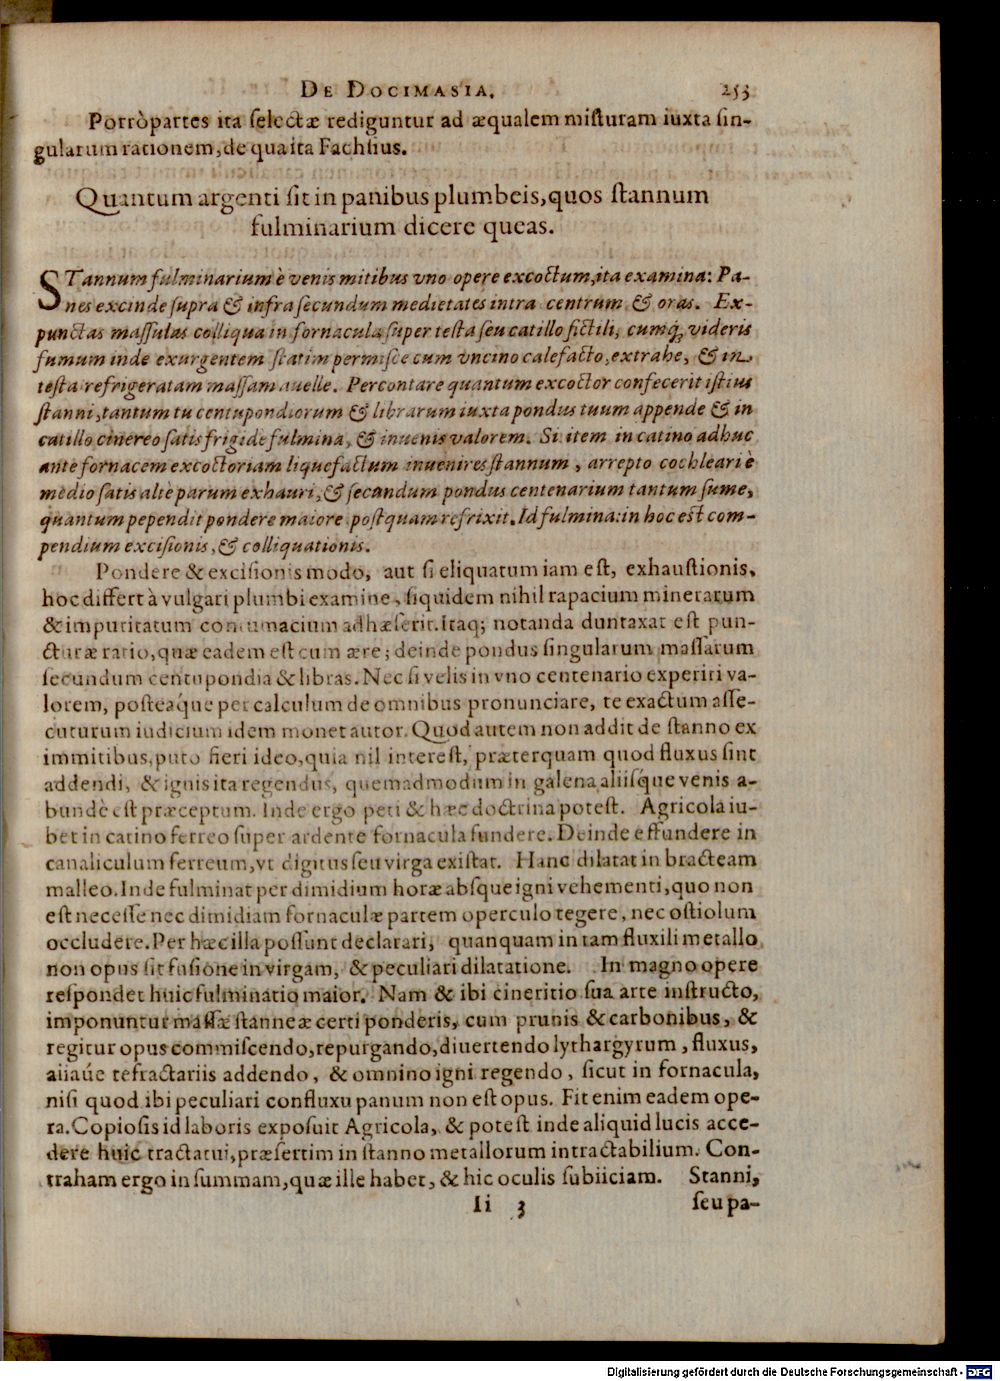 DE DOCIMASIA. 253
Porrò partes ita selectæ rediguntur ad æqualem misturam iuxta sin-
gularum rationem, de qua ita Fachsius.
Quantum argenti sit in panibus plumbeis, quos stannum
fulminarium dicere queas.
STannum fulminarium è venis mitibus vno opere excoctum, ita examina: Pa-
nes excinde supra & infra secundum medietates intra centrum & oras. Ex-
punctas massulas colliqua in fornacula super testa seu catillo fictili, cumq; videris
fumum inde exurgentem statim permisce cum vncino calefacto, extrahe, & in
testa refrigeratam massam auelle. Percontare quantum excoctor confecerit istius
stanni, tantum tu centupondiorum & librarum iuxta pondus tuum appende & in
catillo cinereo satis frigide fulmina, & inuenis valorem. Si item in catino adhuc
ante fornacem excoctoriam liquefactum inuenires stannum, arrepto cochleari è
medio satis altè parum exhauri, & secundum pondus centenarium tantum sume,
quantum pependit pondere maiore postquam refrixit. Id fulmina: in hoc est com-
pendium excisionis, & colliquationis.
Pondere & excisionis modo, aut si eliquatum iam est, exhaustionis,
hoc differt à vulgari plumbi examine, siquidem nihil rapacium minerarum
& impuritatum contumacium adhæserit. Itaq; notanda duntaxat est pun-
cturæ ratio, quæ eadem est cum ære; deinde pondus singularum massarum
secundum centupondia & libras. Nec si velis in vno centenario experiri va-
lorem, posteáque per calculum de omnibus pronunciare, te exactum asse-
cuturum iudicium idem monet autor. Quod autem non addit de stanno ex
immitibus, puto fieri ideo, quia nil interest, præterquam quod fluxus sint
addendi, & ignis ita regendus, quemadmodum in galena aliisque venis a-
bundè est præceptum. Inde ergo peti & hæc doctrina potest. Agricola iu-
bet in catino ferreo super ardente fornacula fundere. Deinde effundere in
canaliculum ferreum, vt digitus seu virga existat. Hanc dilatat in bracteam
malleo. Inde fulminat per dimidium horæ absque igni vehementi, quo non
est necesse nec dimidiam fornaculæ partem operculo tegere, nec ostiolum
occludere. Per hæc illa possunt declarari, quanquam in tam fluxili metallo
non opus sit fusione in virgam, & peculiari dilatatione. In magno opere
respondet huic fulminatio maior. Nam & ibi cineritio sua arte instructo,
imponuntur massæ stanneæ certi ponderis, cum prunis & carbonibus, &
regitur opus commiscendo, repurgando, diuertendo lythargyrum, fluxus,
aiiaúe refractariis addendo, & omnino igni regendo, sicut in fornacula,
nisi quod ibi peculiari confluxu panum non est opus. Fit enim eadem ope-
ra. Copiosis id laboris exposuit Agricola, & potest inde aliquid lucis acce-
dere huic tractatui, præsertim in stanno metallorum intractabilium. Con-
traham ergo in summam, quæ ille habet, & hic oculis subiiciam. Stanni,
Ii 3 seu pa-
Digitalisierung gefördert durch die Deutsche Forschungsgemeinschaft - DFG